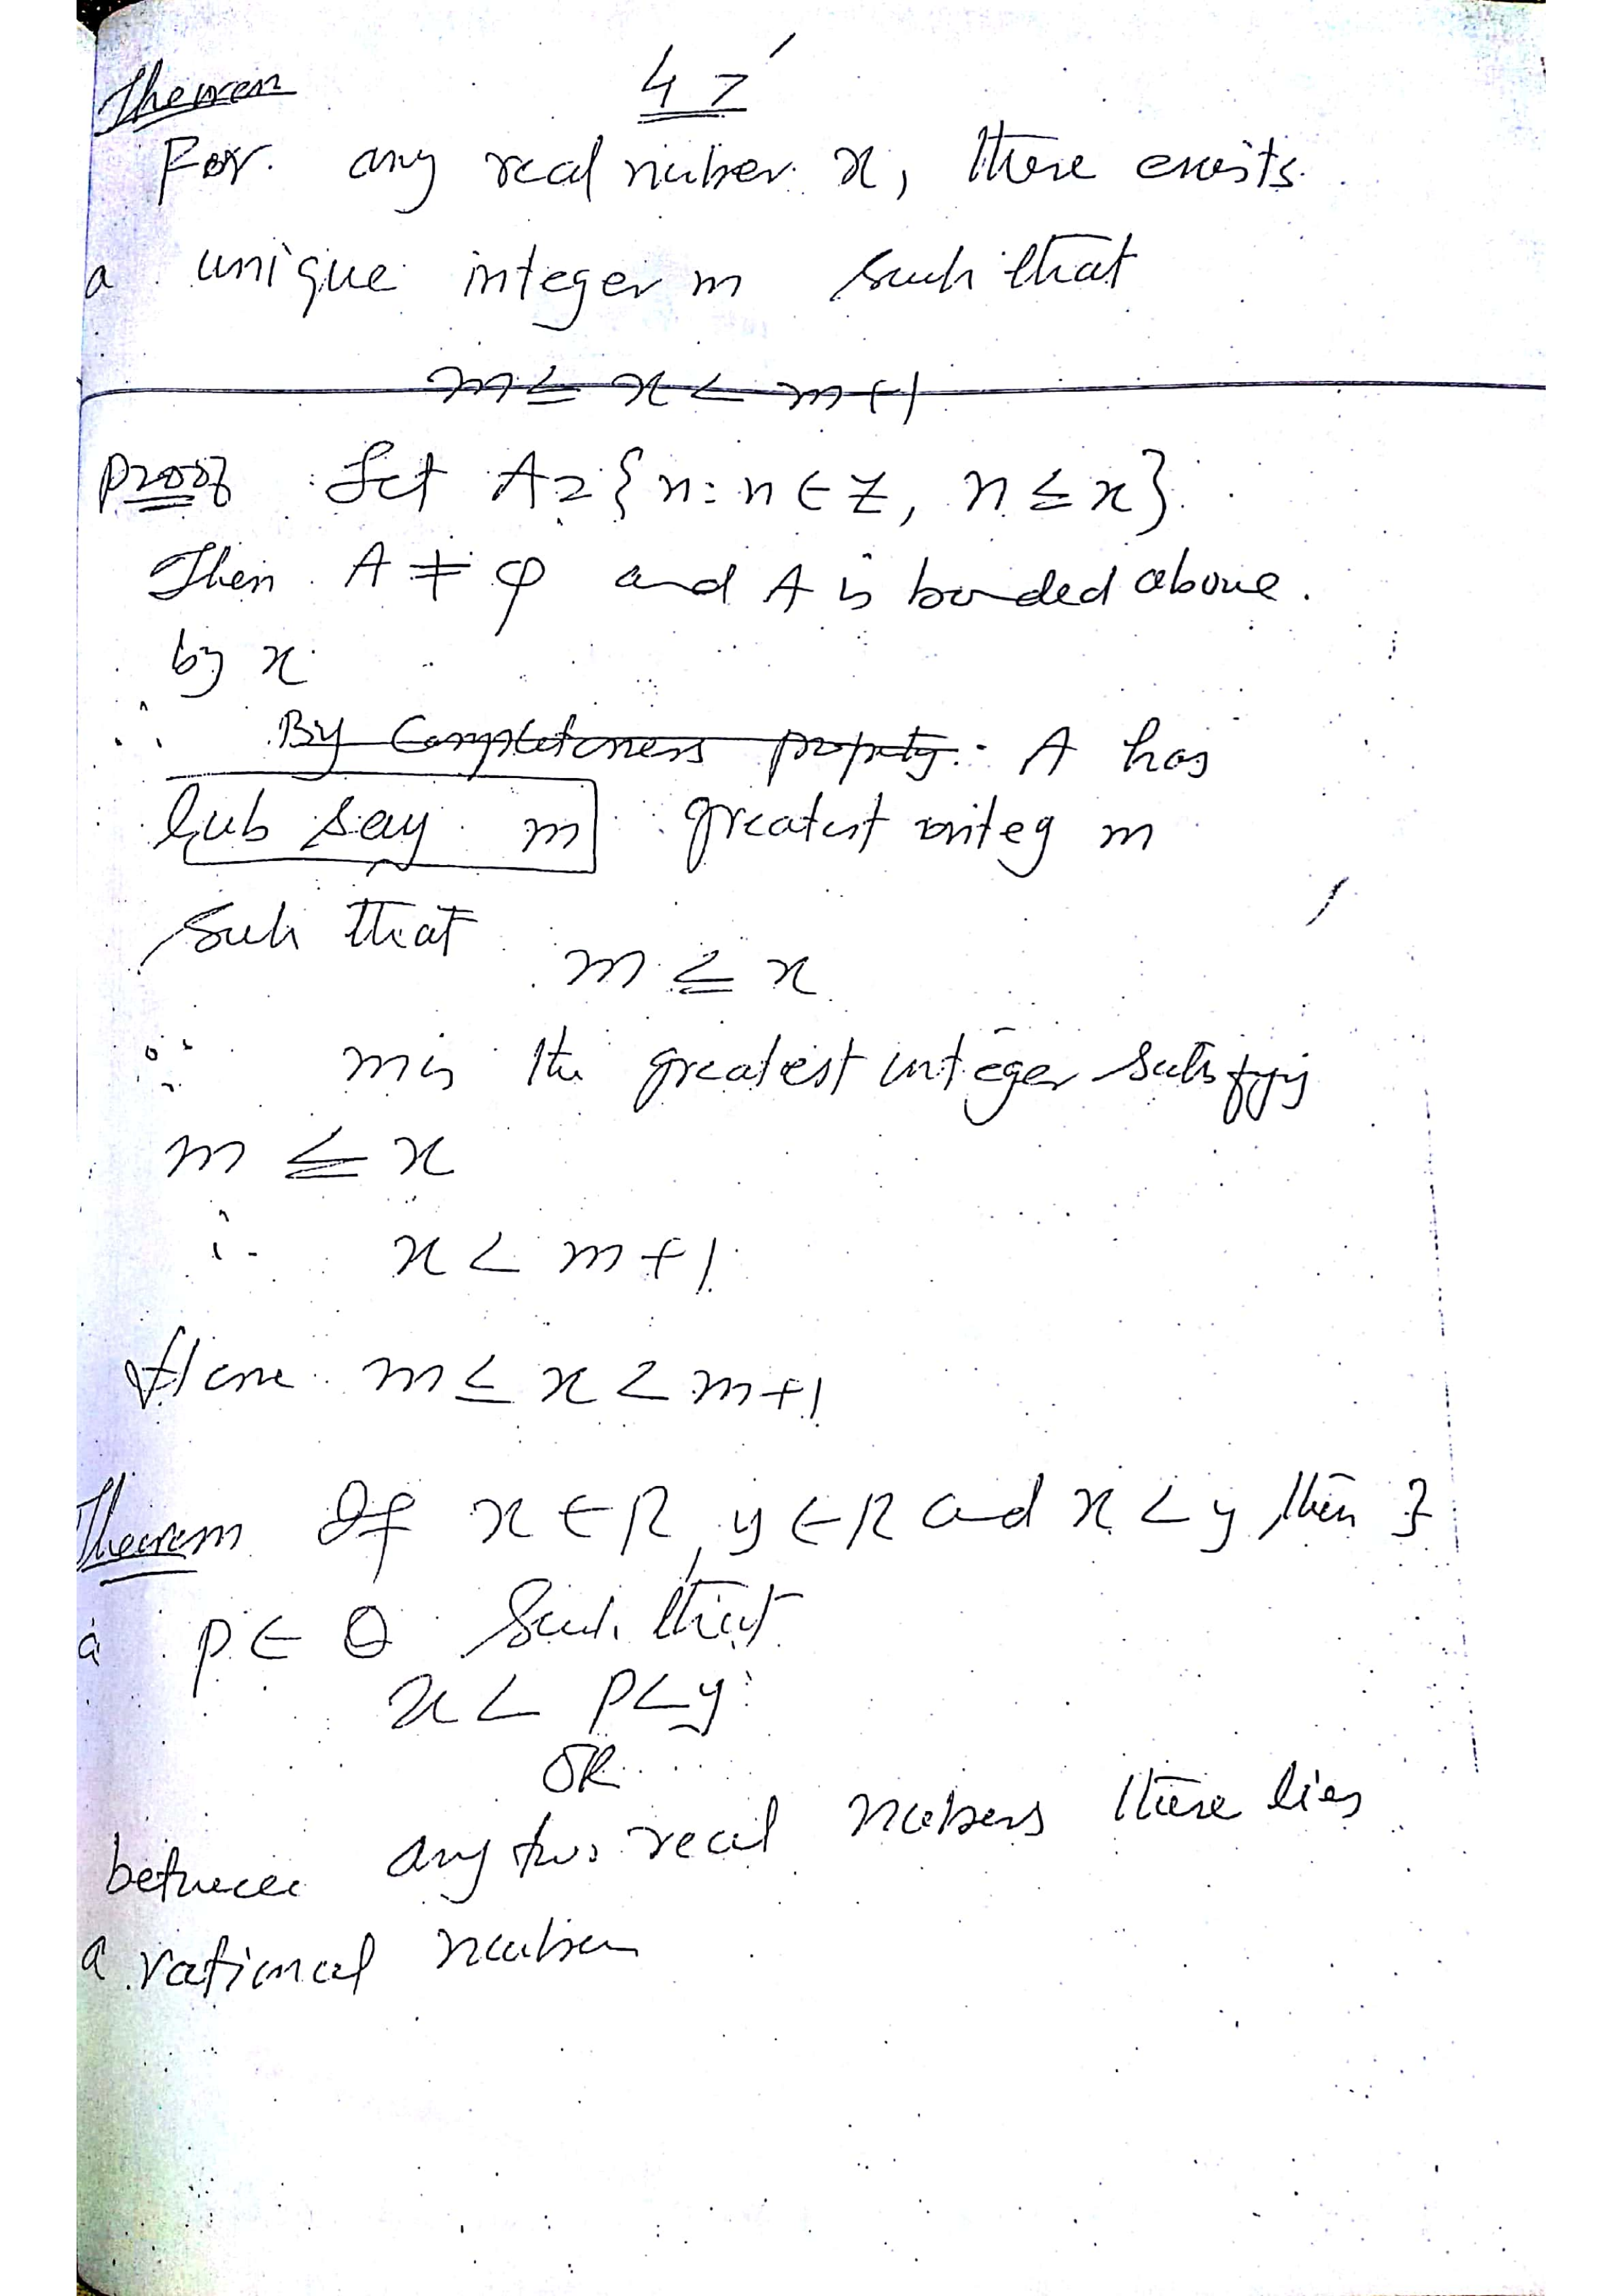 47
Theorem
For any real number x, there exists
a unique integer m such that
m ≤ x < m+1
Proof Let A = {n : n ∈ Z, n ≤ x}
Then A ≠ φ and A is bounded above
by x
∴ By Completeness property A has
lub say m greatest integ m
such that
m ≤ x
∵ m is the greatest integer satisfying
m ≤ x
∴ x < m+1
Hence m ≤ x < m+1
Theorem If x ∈ R, y ∈ R and x < y, then ∃
a p ∈ Q such that
x < p < y
OR
between any two real numbers there lies
a rational number